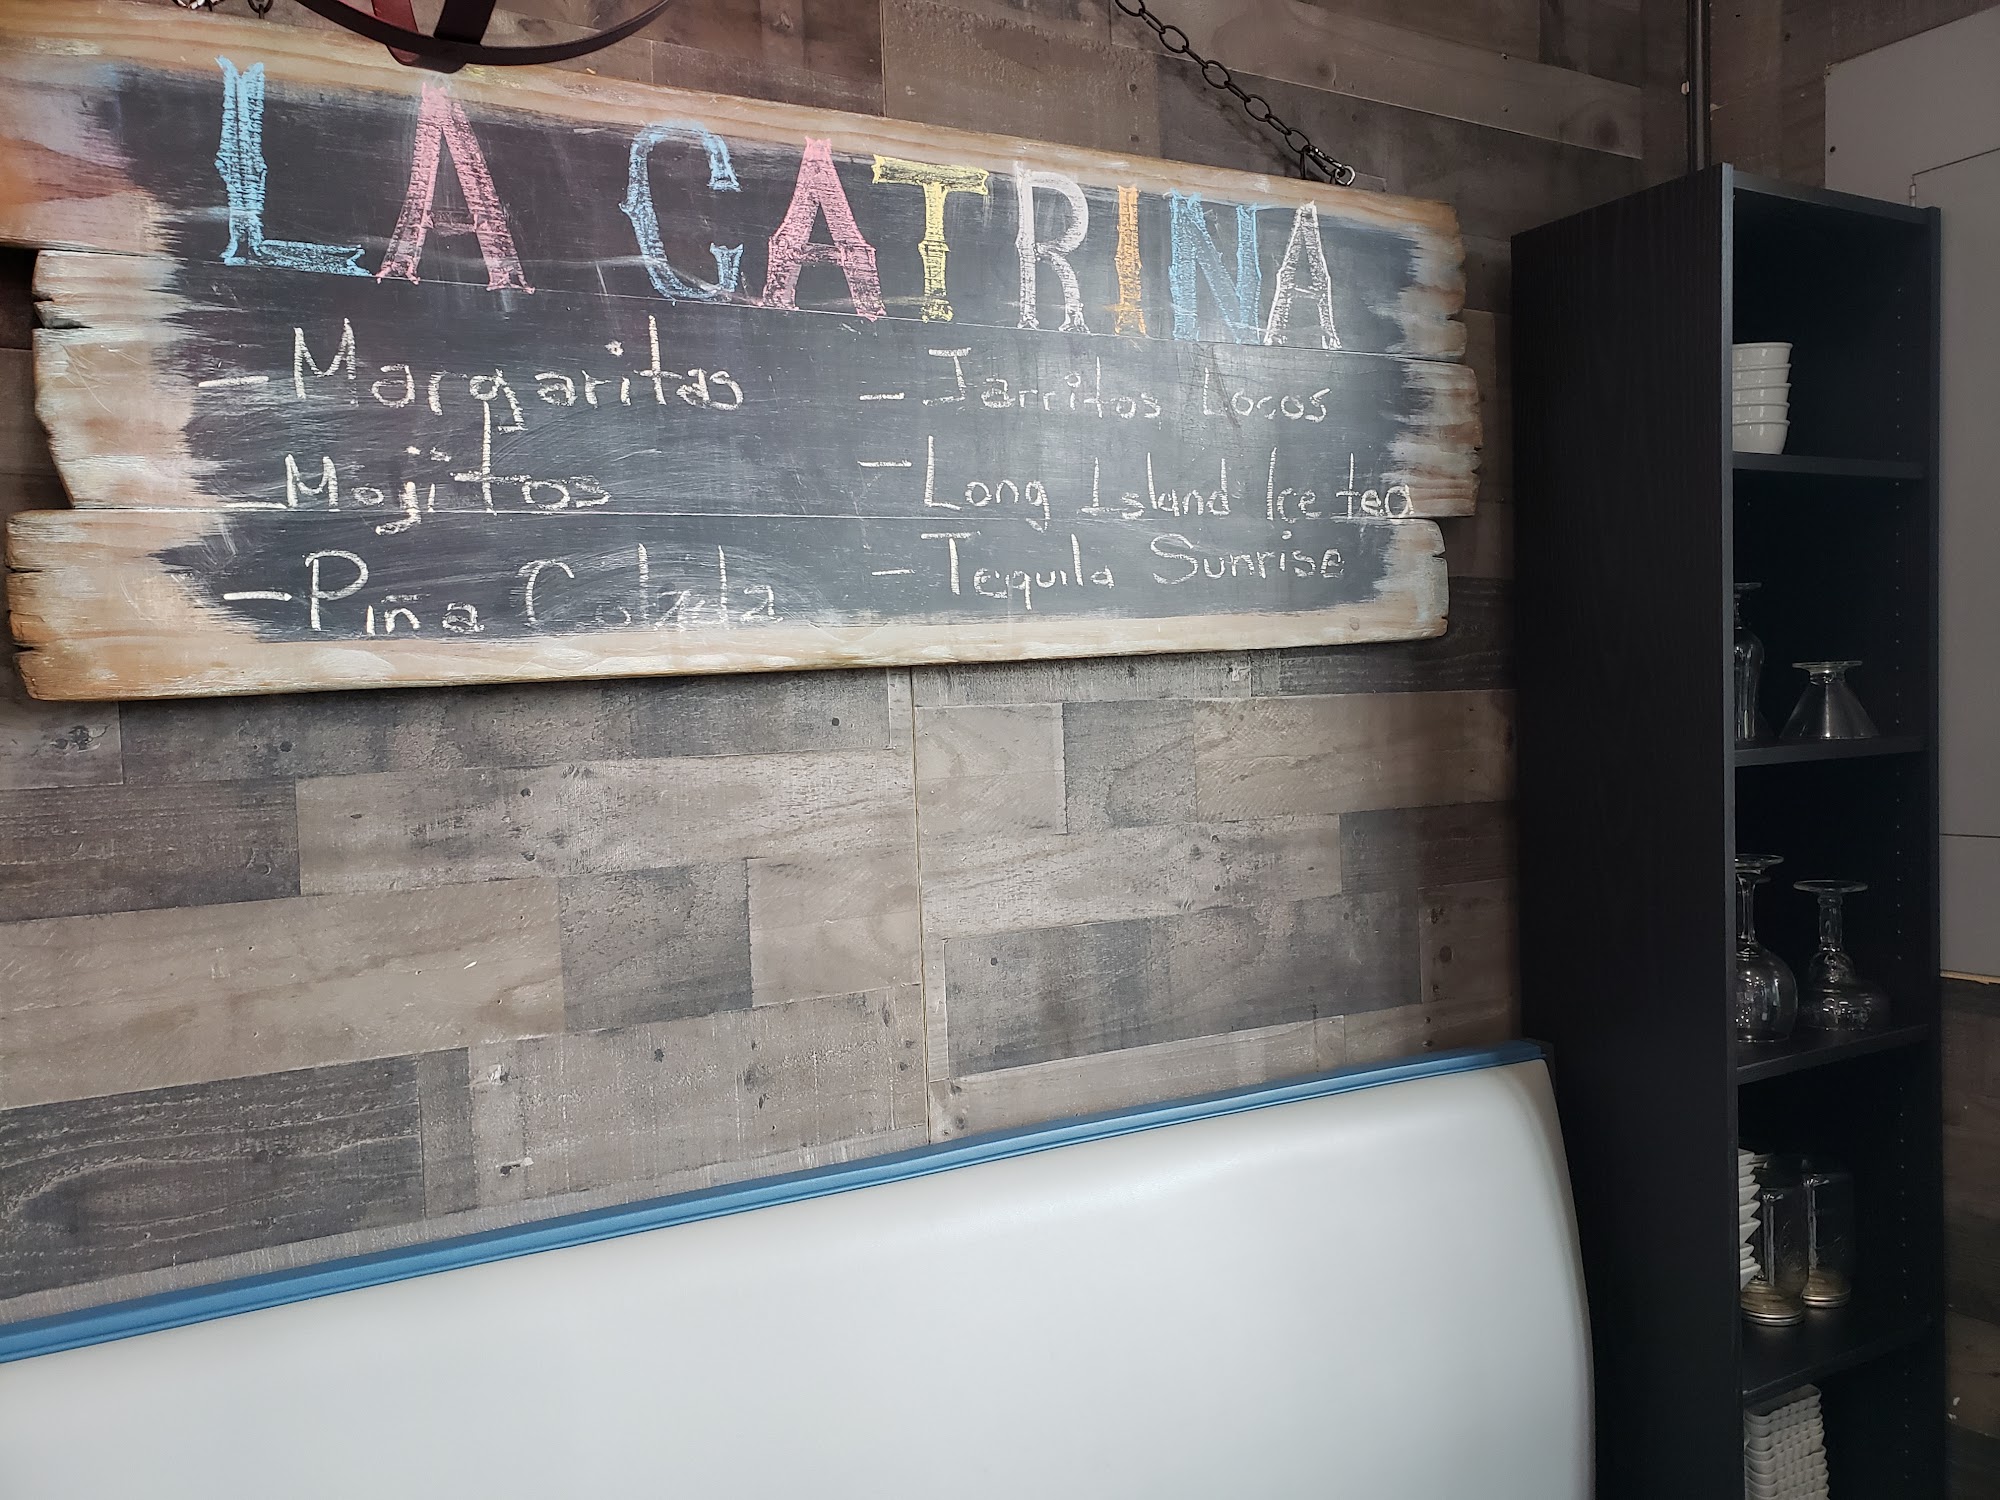 LA CATRINA
- Margaritas
- Mojitos
- Piña Colada
- Jarritos Locos
- Long Island Ice tea
- Tequila Sunrise